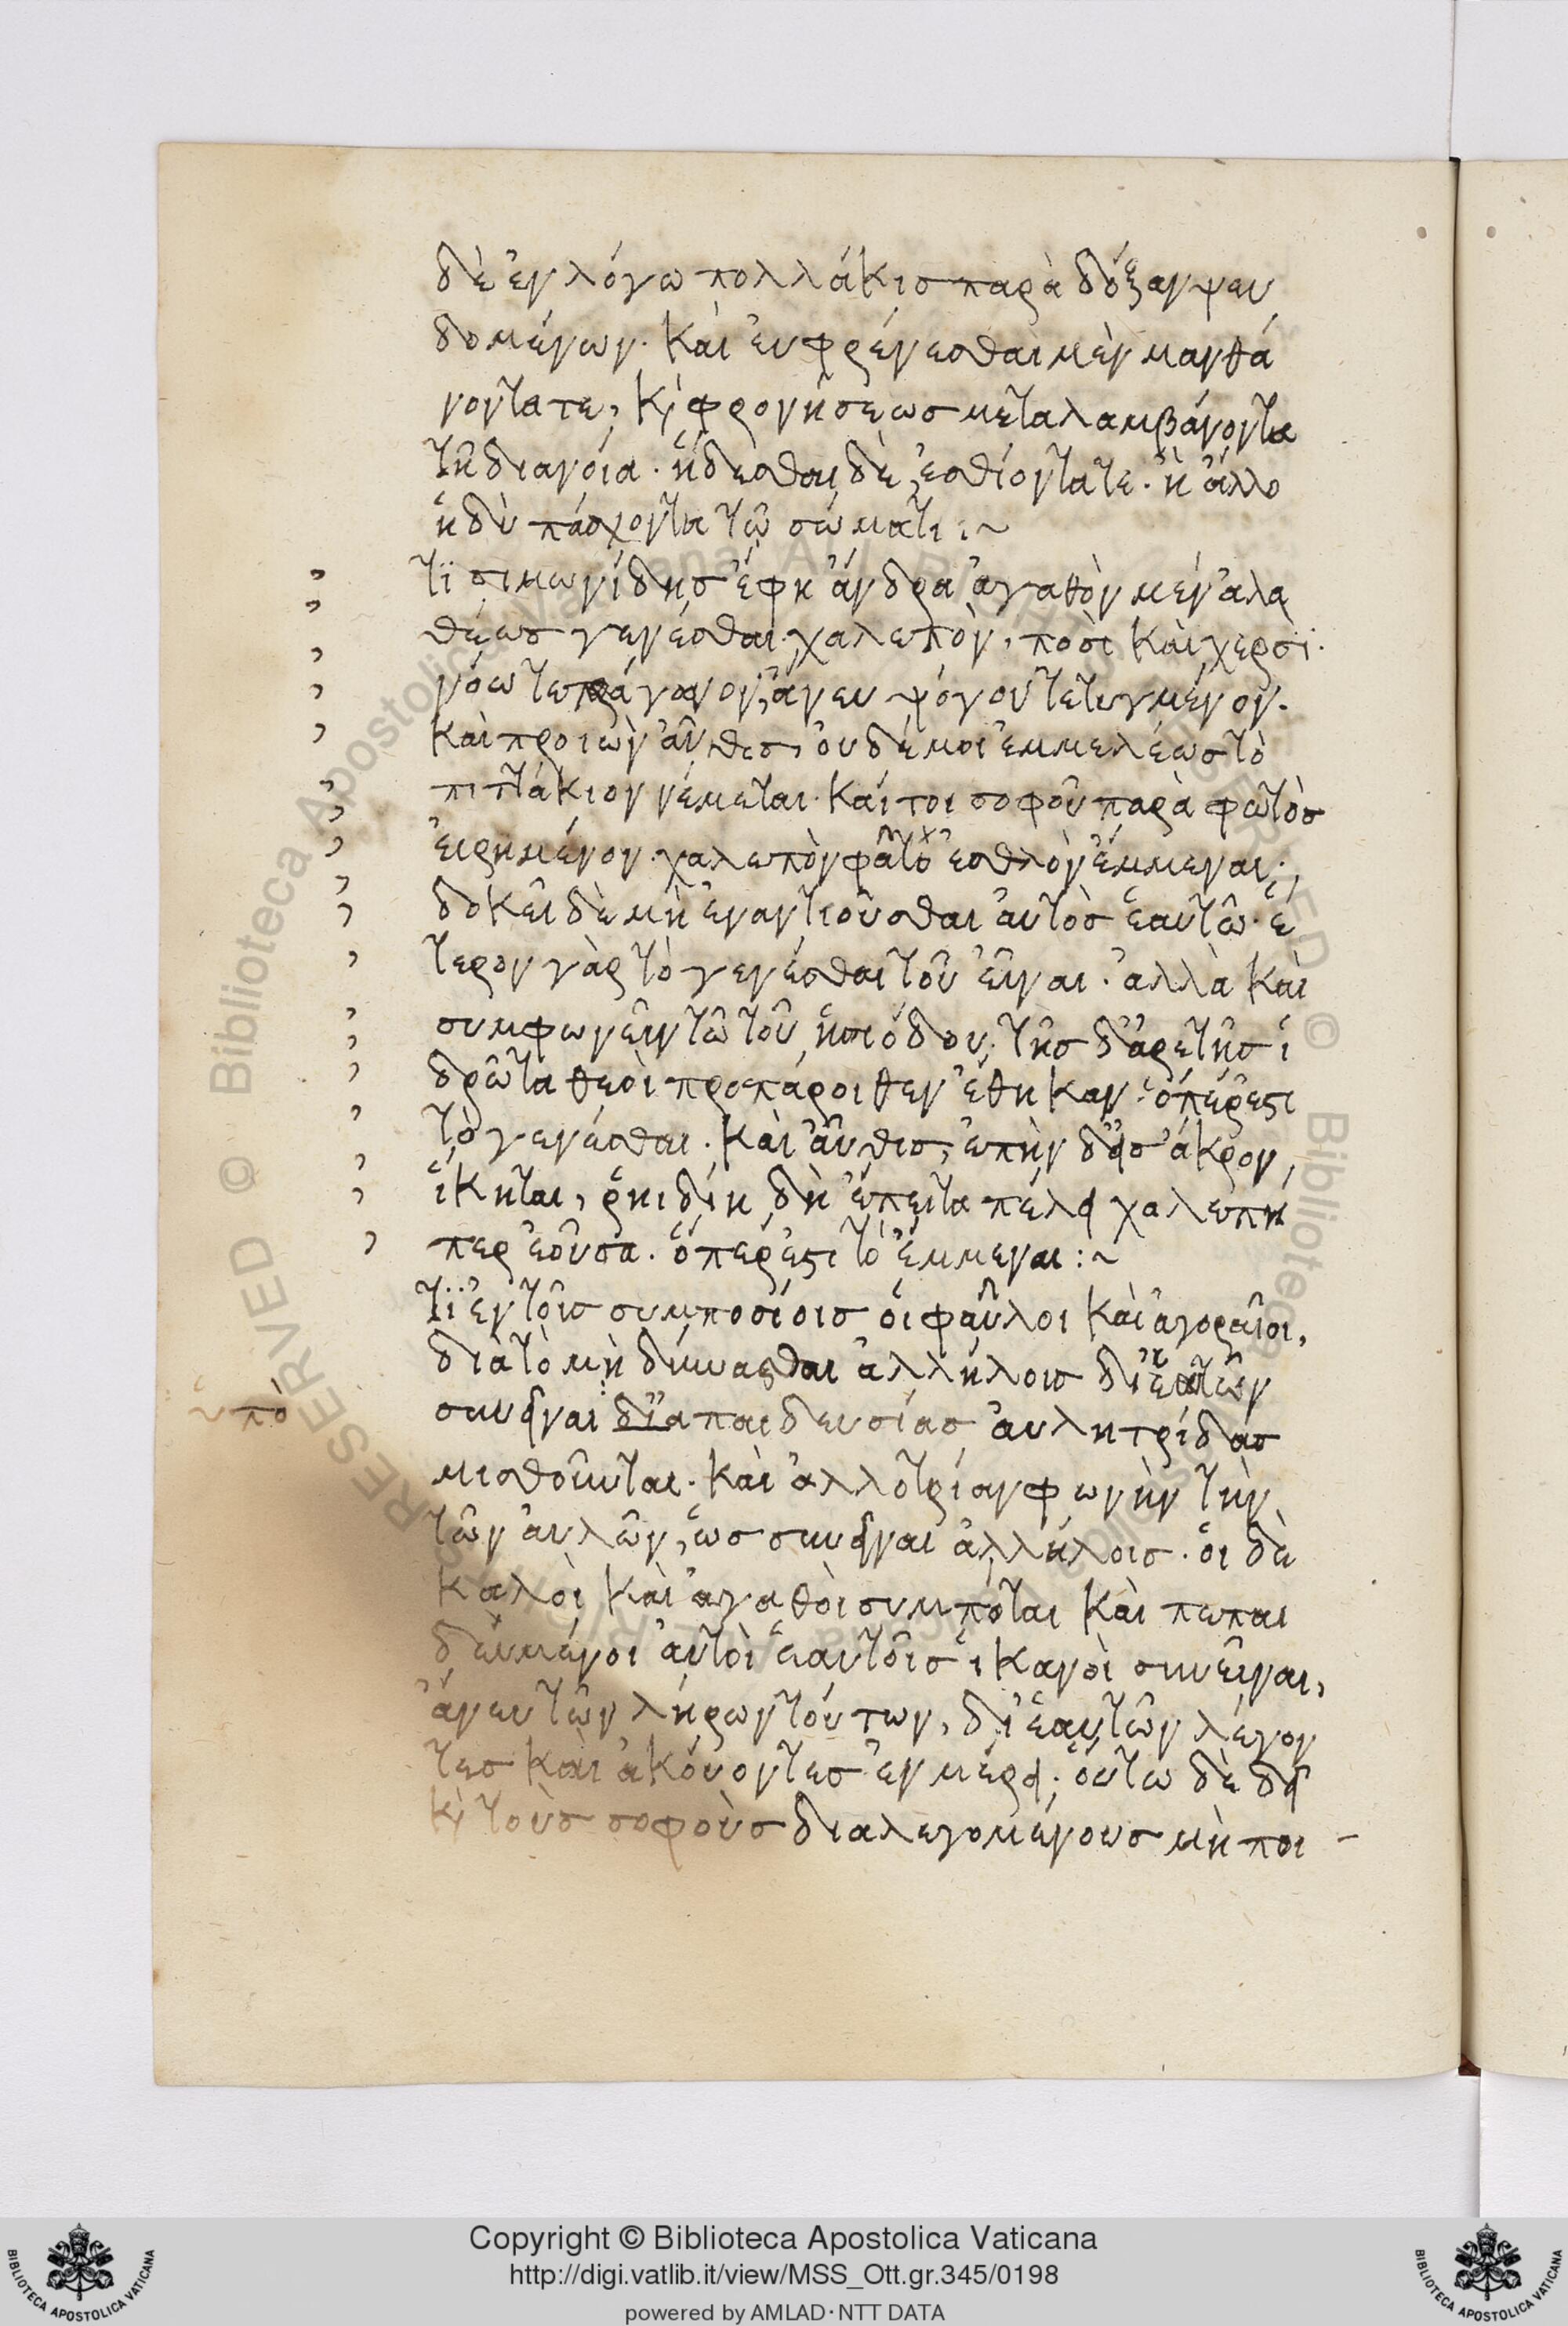 δὲ ἐν λόγω πολλάκισ παρὰ δόξαν ψευ
δομένων· καὶ ἐυφρένεσθαι μὲν μανθά
νοντα τε, κὶ φρονήσεωσ μεταλαμβάνοντα
τῆ διανοία· ἥδεσθαι δὲ, ἐσθίοντα τε· ἢ ἄλλο
ἡδὺ πάσχοντα τῶ σώματι :~
τϊ σιμωνίδησ ἔφη ἄνδρα ἀγαθὸν μὲν ἀλα
θέωσ γενέσθαι χαλεπὸν, ποσὶ καὶ χερσὶ·
νόω τετράγωνον, ἄνευ ψόγου τετυγμένον·
καὶ προιὼν αὖθεσ, ὀυδέ μοι ἐμμελέωσ τὸ
πιττάκιον νέμεται· καί τοι σοφοῦ παρὰ φωτὸσ
ἐιρημένον· χαλεπὸν φᾶτο ἐσθλὸν ἔμμεναι·
δοκεῖ δὲ μὴ ἐναντιοῦσθαι ἀυτὸσ ἑαυτῶ· ἕ
τερον γὰρ τὸ γενέσθαι τοῦ εἶναι· ἀλλὰ καὶ
συμφωνεῖν τῶ τοῦ ἡσιόδου· τῆσ δ' ἀρετῆσ ἱ
δρῶτα θεοὶ προπάροιθεν ἔθηκαν· ὅπέρ ἐστι
τὸ γενέσθαι· καὶ αὖθισ, ἐπὴν δ' εἰσ ἄκρον
ἵκηται, ῥηιδίη δὴ ἔπειτα πέλει χαλεπή
περ ἐοῦσα· ὅπέρ ἐστι τὸ ἔμμεναι :~
τϊ ἐν τοῖσ συμποσίοισ ὁι φαῦλοι καὶ ἀγοραῖοι,
διὰ τὸ μὴ δύνασθαι ἀλλήλοισ δι' ἑαυτῶν
συνεῖναι δϊα παιδευσίασ ἀυλητρίδασ
ὑπὸ
μισθοῦνται· καὶ ἀλλοτρίαν φωνὴν τὴν
τῶν ἀυλῶν, ἕωσ συνεῖναι ἀλλήλοισ· ὁι δὲ
καλοὶ καὶ ἀγαθοὶ συμπόται καὶ πεπαι
δευμένοι ἀυτοὶ ἑαυτοῖσ ἱκανοὶ συνεῖναι,
ἄνευ τῶν λήρων τούτων, δι' ἑαυτῶν λέγον
τεσ καὶ ἀκούοντεσ ἐν μέρει· ὅυτω δὲ δεῖ
κὶ τοὺσ σοφοὺσ διαλεγομένουσ μὴ ποι -
Copyright © Biblioteca Apostolica Vaticana
http://digi.vatlib.it/view/MSS_Ott.gr.345/0198
powered by AMLAD·NTT DATA